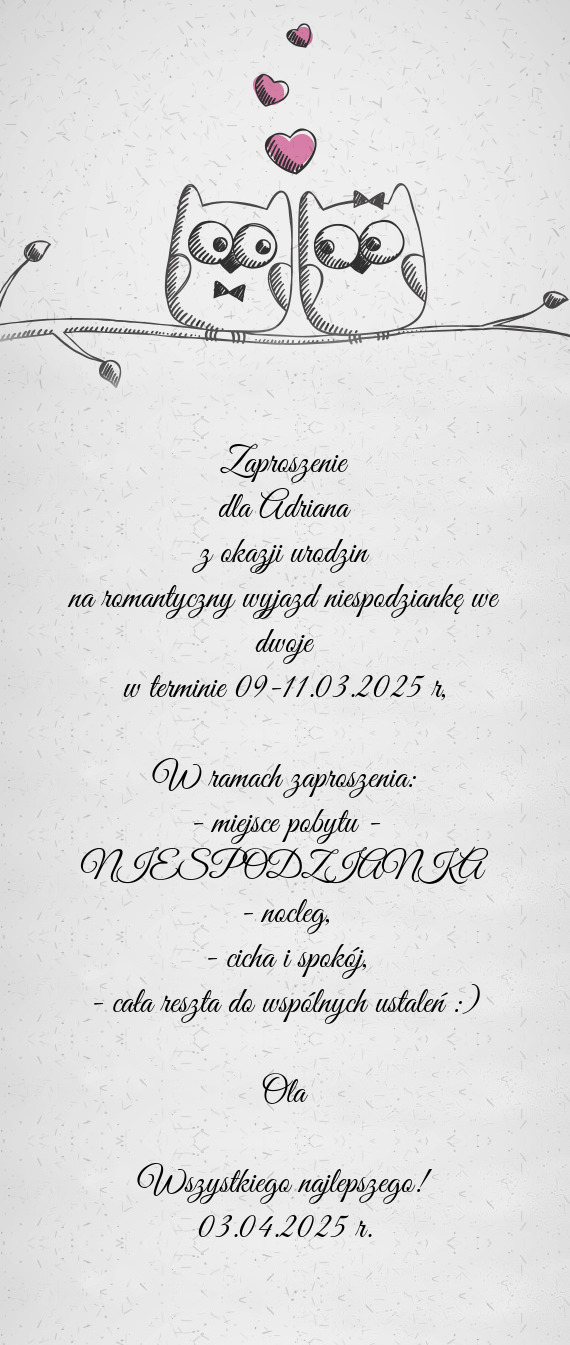 Zaproszenie
dla Adriana
z okazji urodzin
na romantyczny wyjazd niespodziankę we
dwoje
w terminie 09-11.03.2025 r,
W ramach zaproszenia:
- miejsce pobytu -
NIESPODZIANKA
- nocleg,
- cicha i spokój,
- cała reszta do wspólnych ustaleń :)
Ola
Wszystkiego najlepszego!
03.04.2025 r.